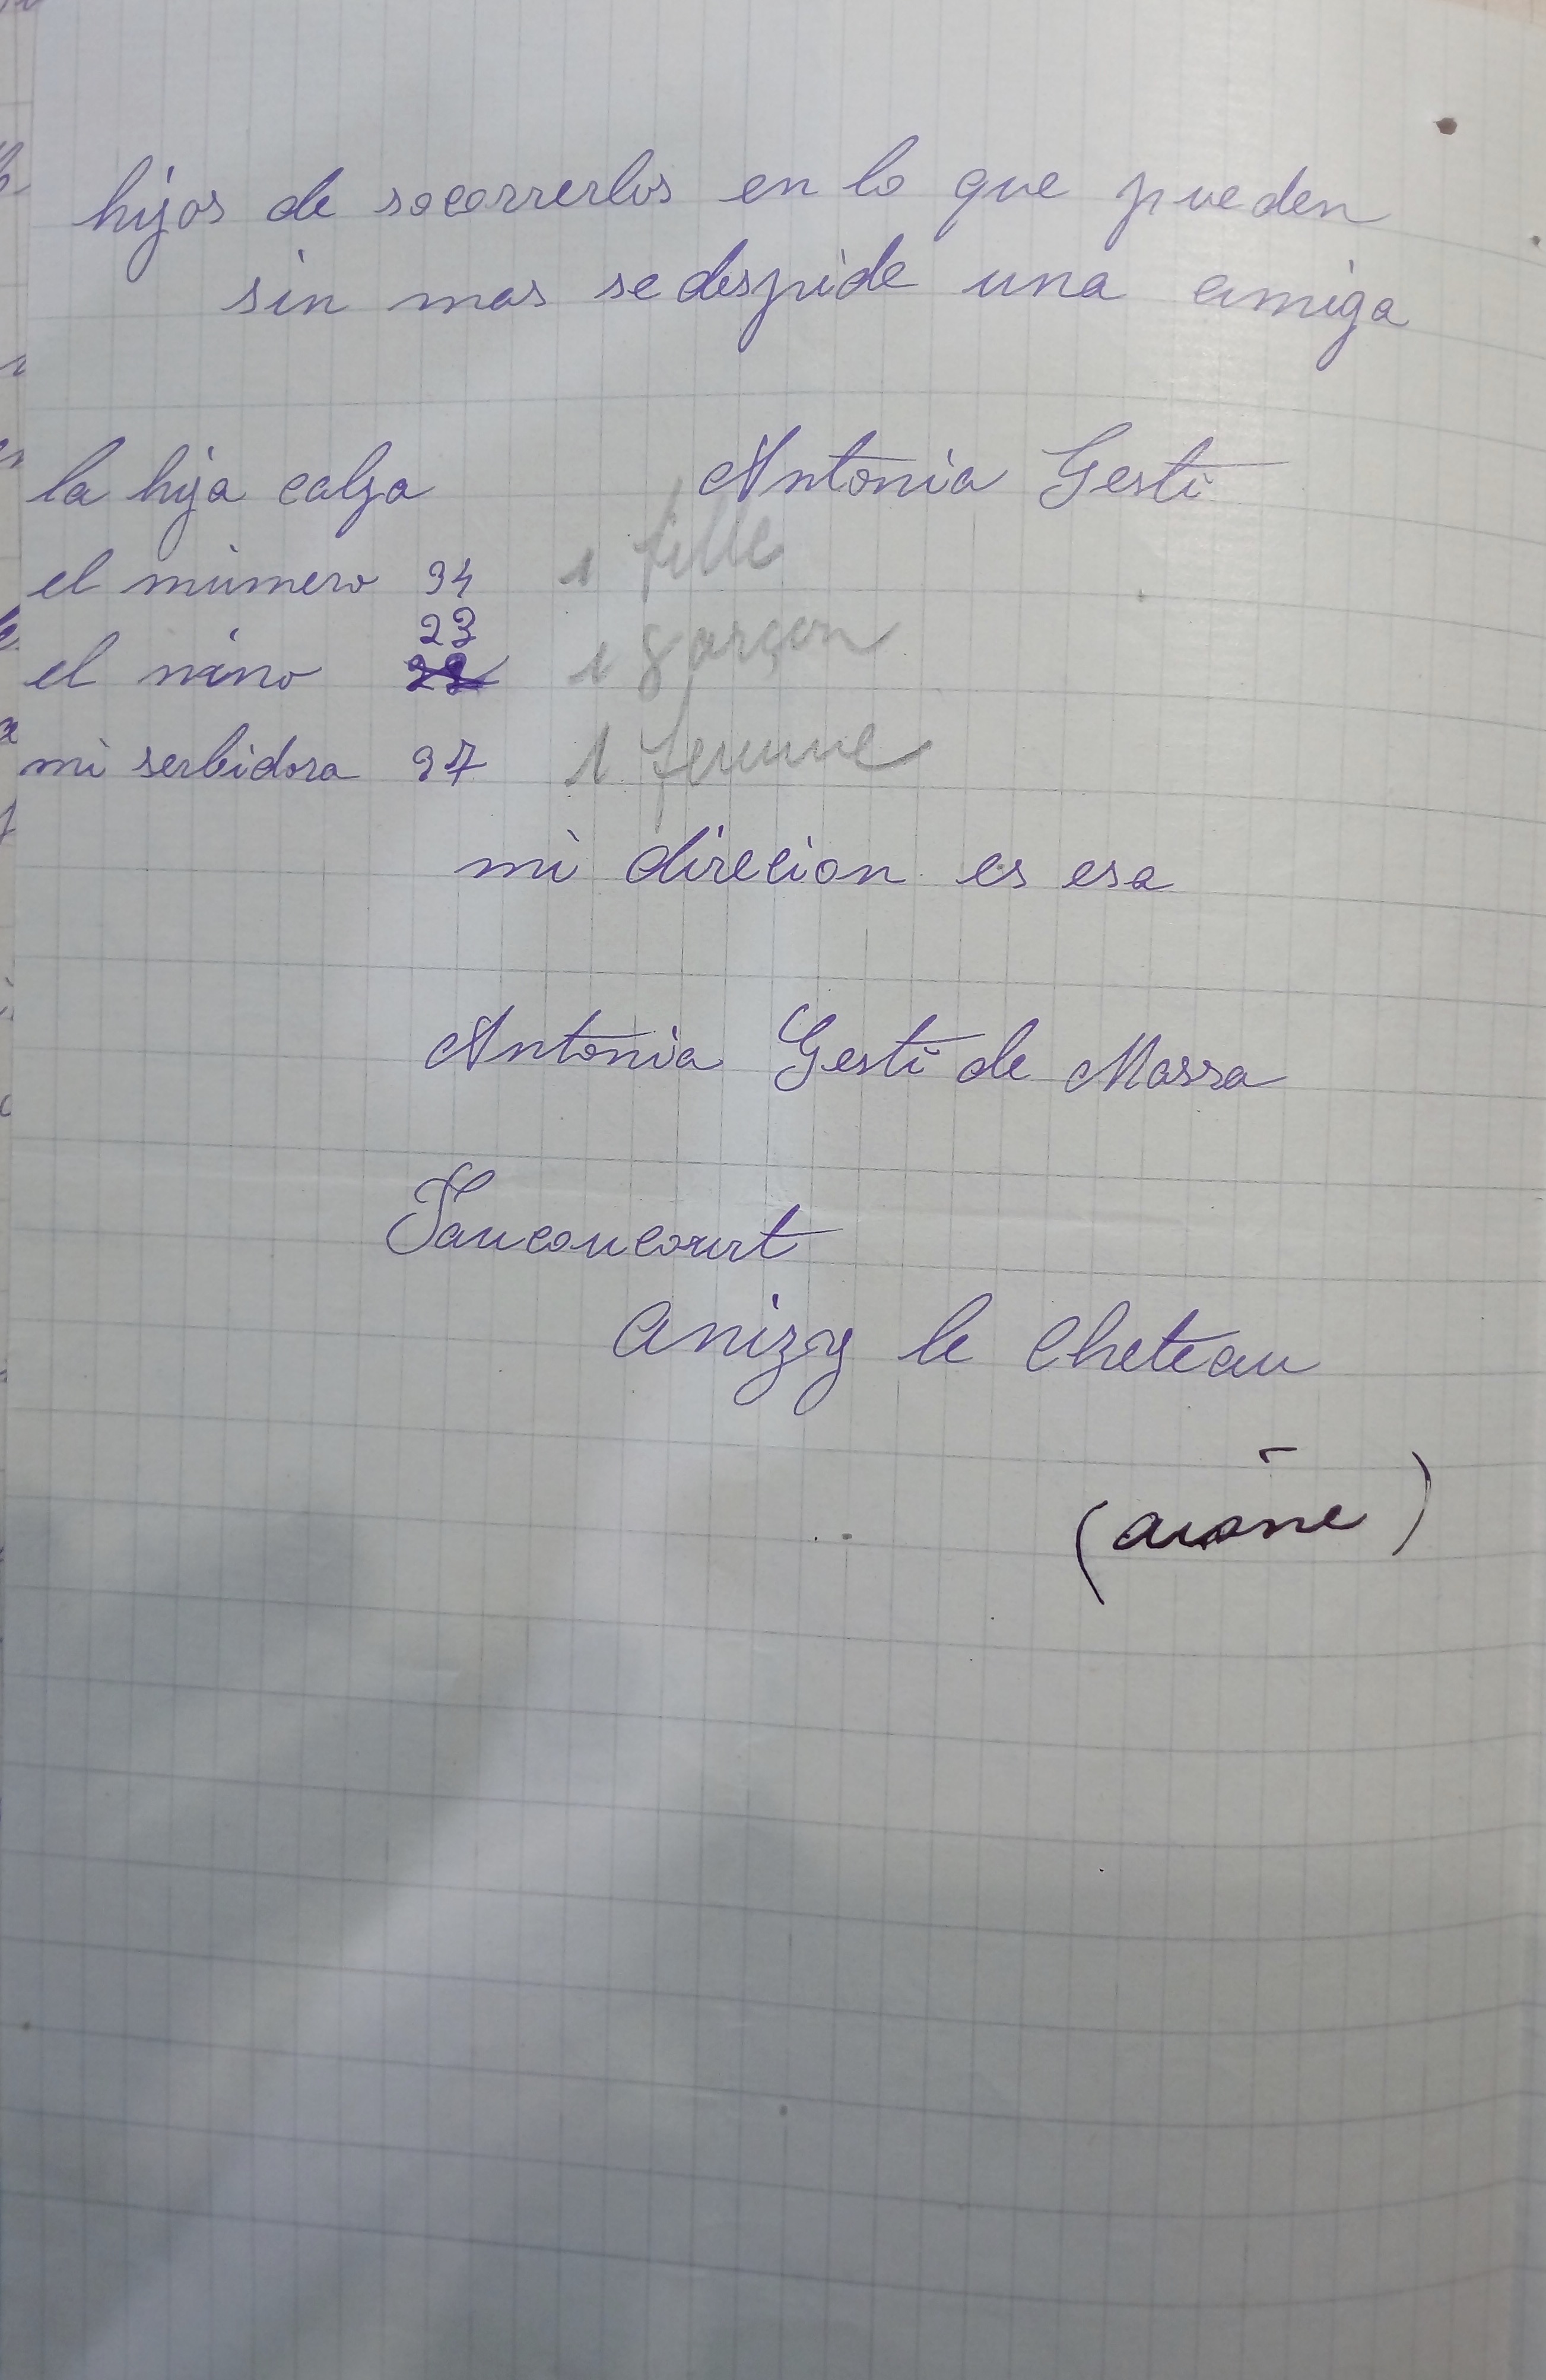 hijos de socorrerlos en lo que pueden
sin mas se despide una amiga
Antonia Gesti
la hija calza
el número 34 1 fille
23
el nino 22 1 garçon
mi serbidora 37 1 femme
mi direcion es esa
Antonia Gesti de Massa
Faucoucourt
Anizy le Cheteau
(aisne)